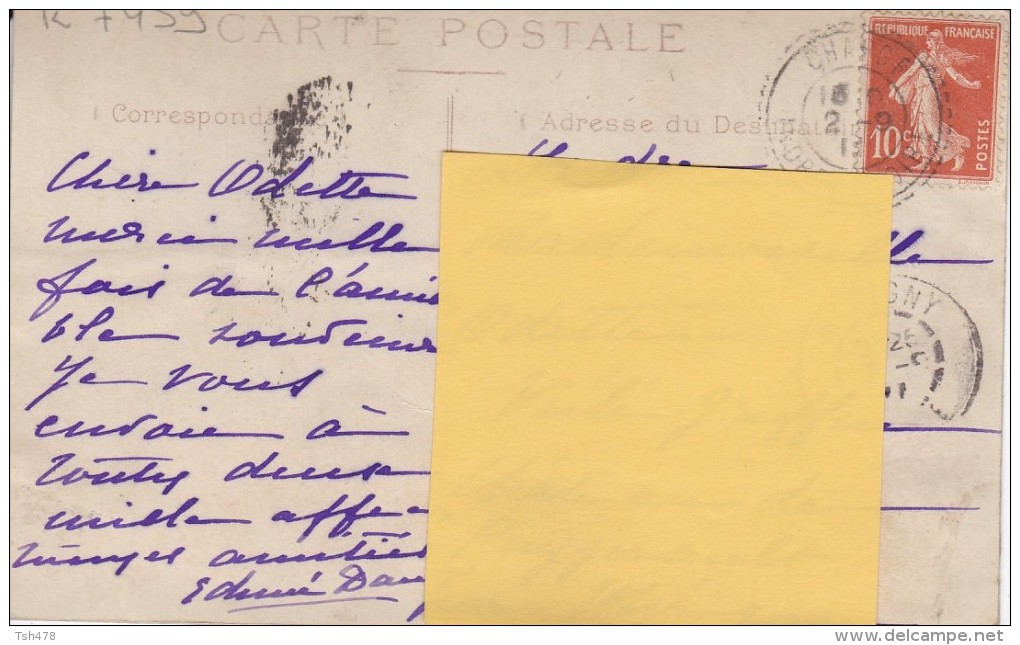 R 7459
CARTE POSTALE
Correspond
Adresse du Destinat
RÉPUBLIQUE FRANÇAISE
10c
POSTES
CHA
2 -9
GNY
Chère Odette
merci mille
fois de l'ami
ble souvenir
Je vous
envoie à
toutes deux
mille affec
tueuses amitiés
lle
Tsh478
delcampe.net